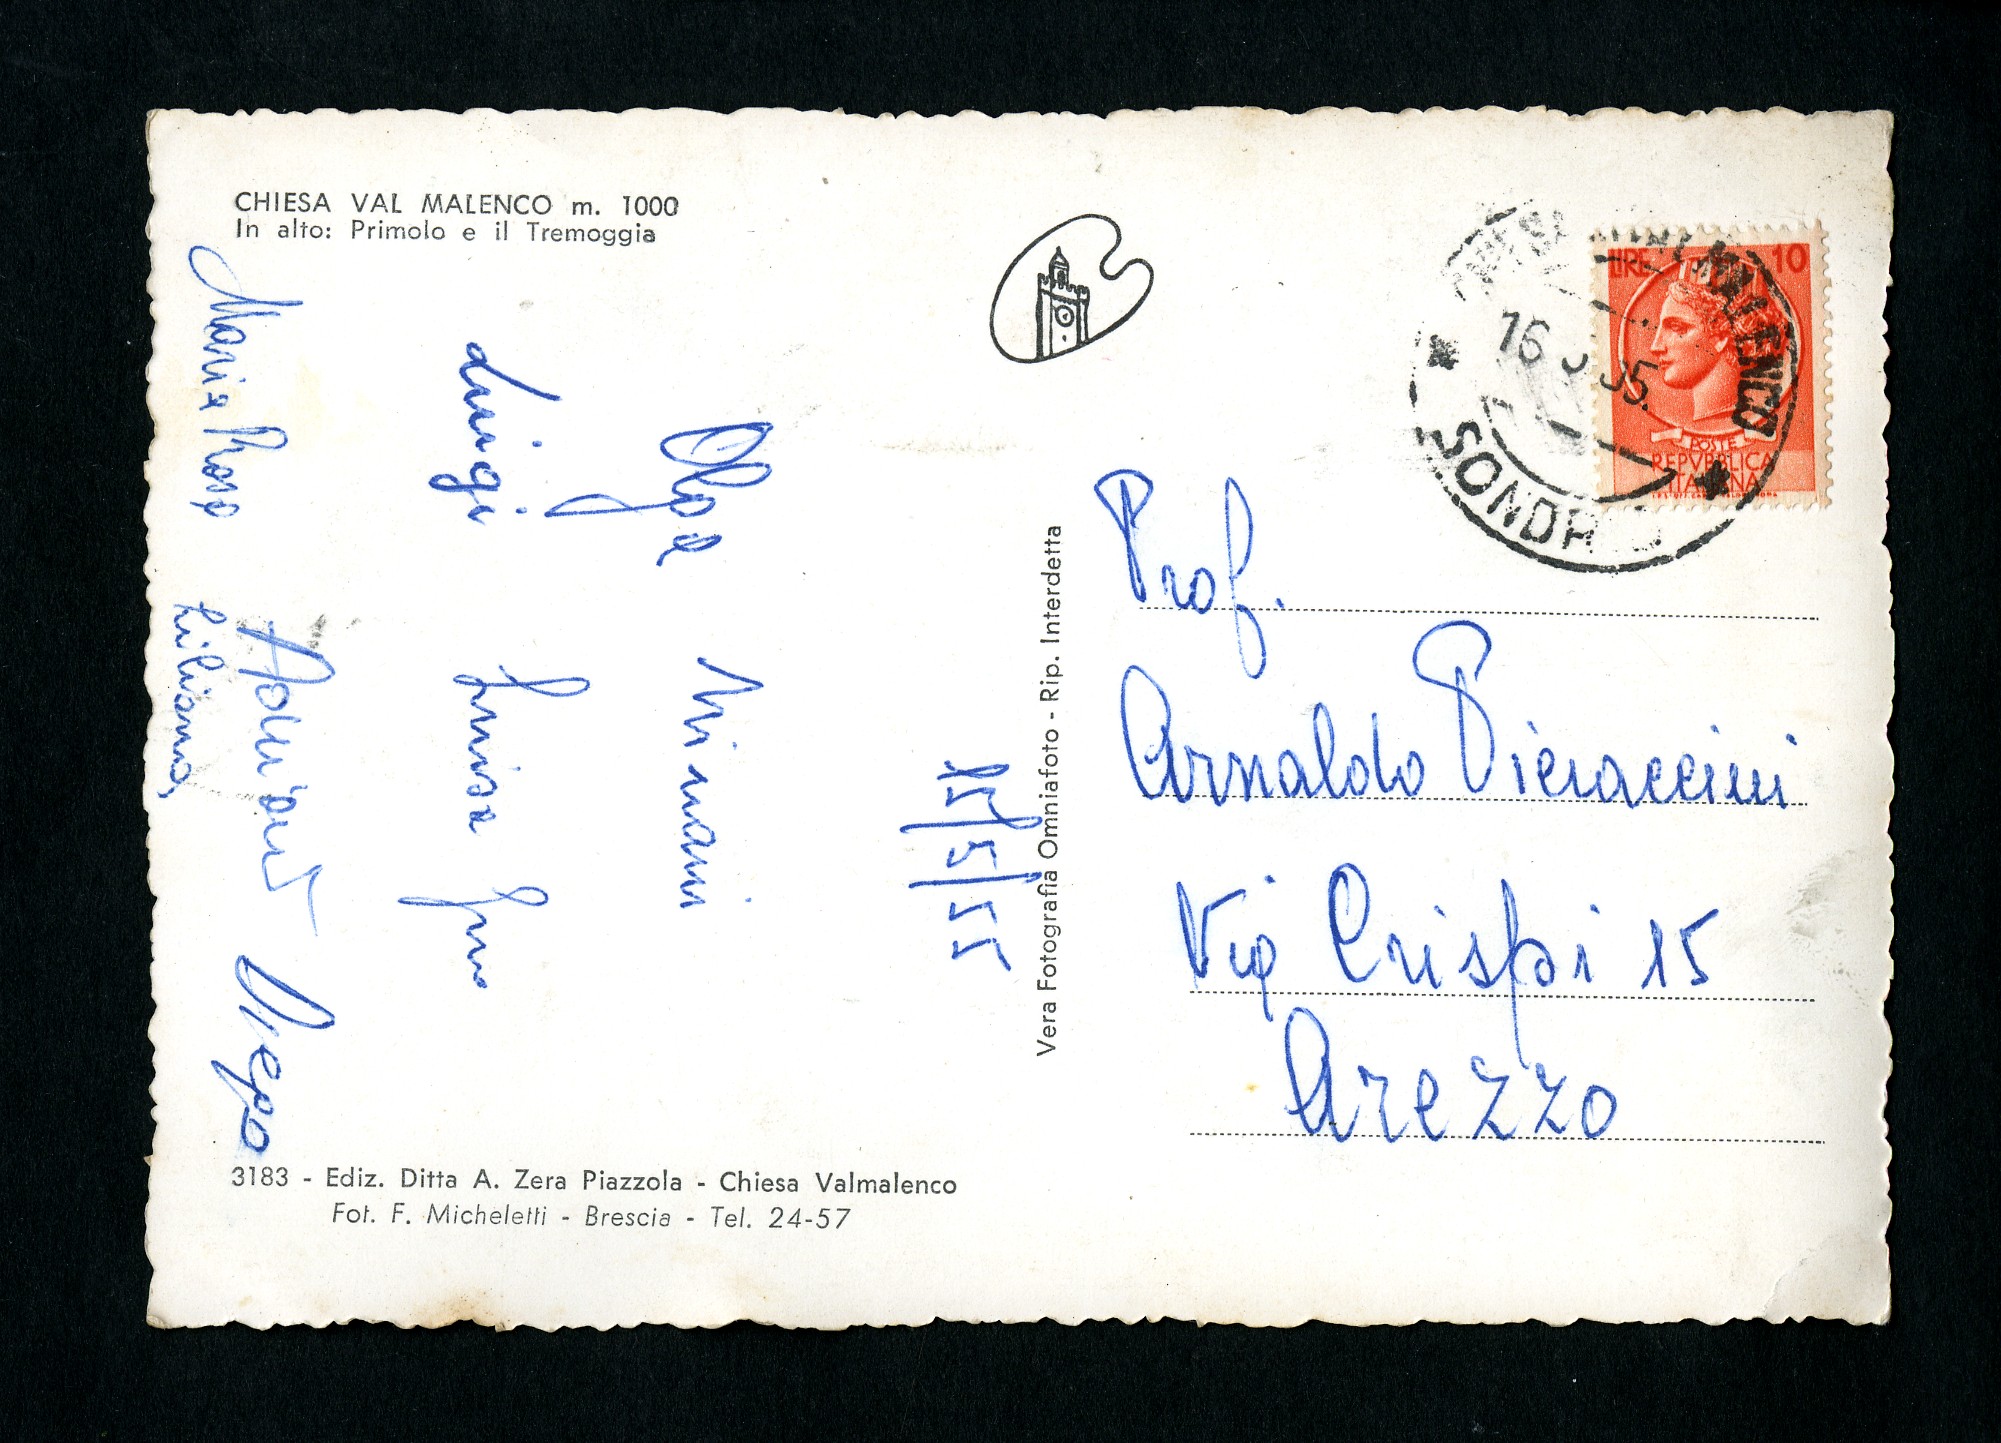 CHIESA VAL MALENCO m. 1000
In alto: Primolo e il Tremoggia
15/5/55
Olga
Luigi Luisa
Maria Rosa Liliana
Vera Fotografia Omniafoto - Rip. Interdetta
VALMALENCO
16 55.
SONDR
LIRE 10
POSTE
REPVBBLICA
ITALIANA
Prof.
Arnaldo Pieraccini
Via Crispi 15
Arezzo
3183 - Ediz. Ditta A. Zera Piazzola - Chiesa Valmalenco
Fot. F. Micheletti - Brescia - Tel. 24-57